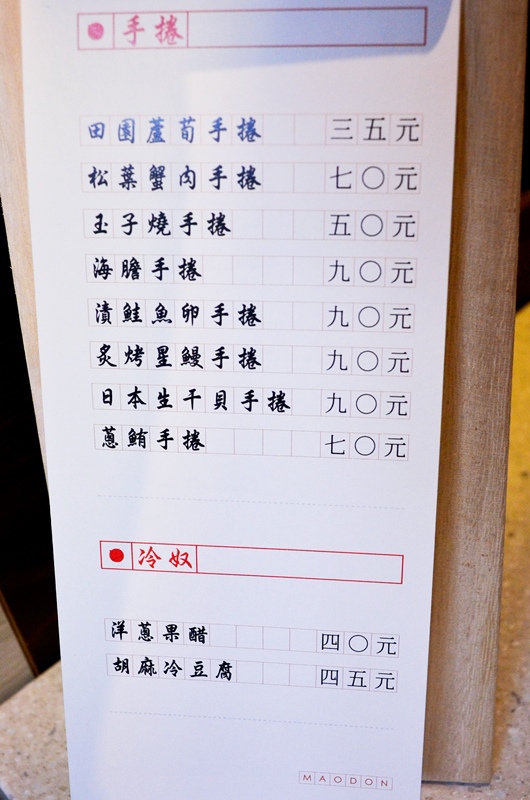 手捲
田園蘆荀手捲 三五元
松葉蟹肉手捲 七〇元
玉子燒手捲 五〇元
海膽手捲 九〇元
漬鮭魚卵手捲 九〇元
炙烤星鰻手捲 九〇元
日本生干貝手捲 九〇元
蔥鮪手捲 七〇元
冷奴
洋蔥果醋 四〇元
胡麻冷豆腐 四五元
MAODON